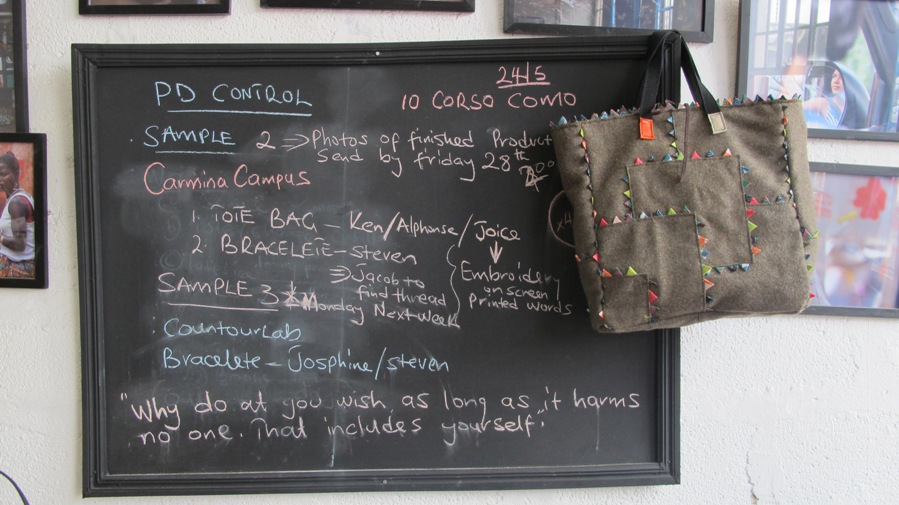 24/5
PD CONTROL
10 CORSO COMO
SAMPLE 2 ⇒ Photos of finished Product
Send by friday 28th
Carmina Campus
1. TOTE BAG – Ken/Alphonse/Joice
2. BRACELETE – Steven
Embroidery
on screen
Printed words
⇒ Jacob to
find thread
SAMPLE 3
Monday Next week
CountourLab
Bracelete – Josphine/steven
"Why do at you wish, as long as it harms
no one. That includes yourself."